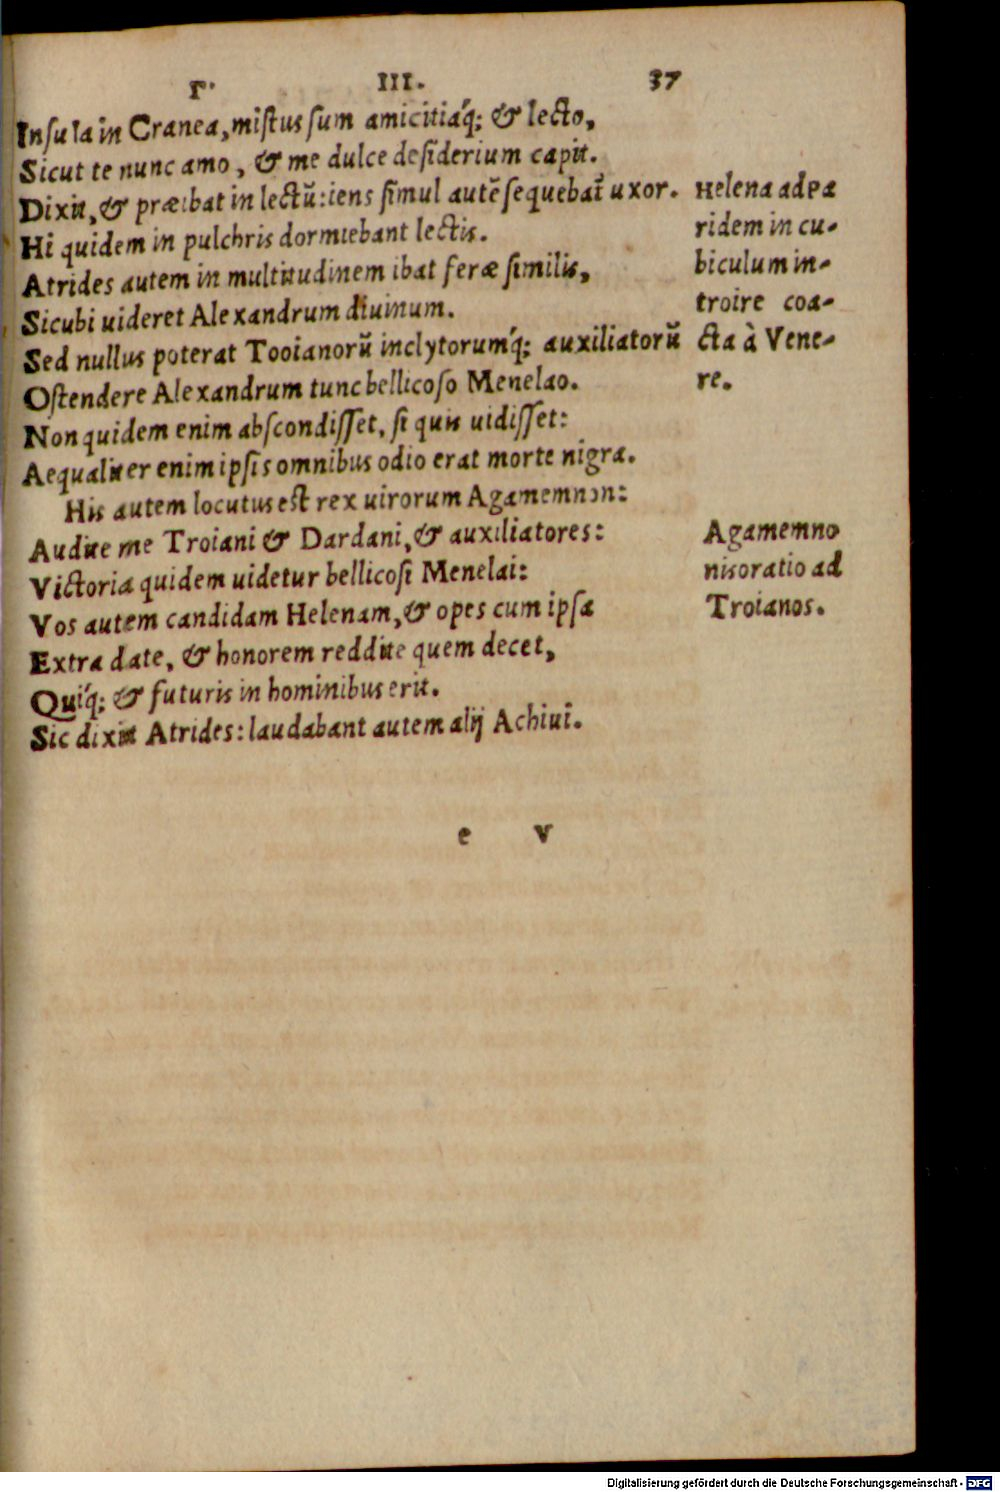 Γ· III. 37
Insula in Cranea, mistus sum amicitiáq; & lecto,
Sicut te nunc amo, & me dulce desiderium capit.
Dixit, & præibat in lectũ: iens simul autẽ sequebat̃ uxor.
Hi quidem in pulchris dormiebant lectis.
Atrides autem in multitudinem ibat feræ similis,
Sicubi uideret Alexandrum diuinum.
Sed nullus poterat Tooianorũ inclytorumq́; auxiliatorũ
Ostendere Alexandrum tunc bellicoso Menelao.
Non quidem enim abscondisset, si quis uidisset:
Aequaliter enim ipsis omnibus odio erat morte nigra.
His autem locutus est rex uirorum Agamemnon:
Audite me Troiani & Dardani, & auxiliatores:
Victoria quidem uidetur bellicosi Menelai:
Vos autem candidam Helenam, & opes cum ipsa
Extra date, & honorem reddite quem decet,
Quiq́; & futuris in hominibus erit.
Sic dixit Atrides: laudabant autem alij Achiui.
Helena ad Pa
ridem in cu-
biculum in-
troire coa-
cta à Vene-
re.
Agamemno
nis oratio ad
Troianos.
e v
Digitalisierung gefördert durch die Deutsche Forschungsgemeinschaft - DFG